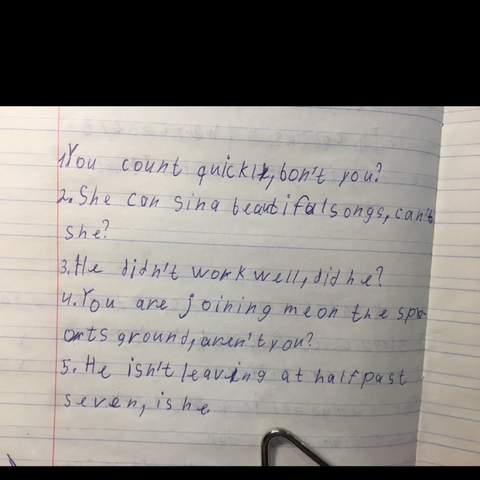 1.You count quickly, bon't you?
2. She can sina beautifulsongs, can't
she?
3. He didn't work well, did he?
4. You are joining me on the spo-
orts ground, aren't you?
5. He isn't leaving at half past
seven, is he